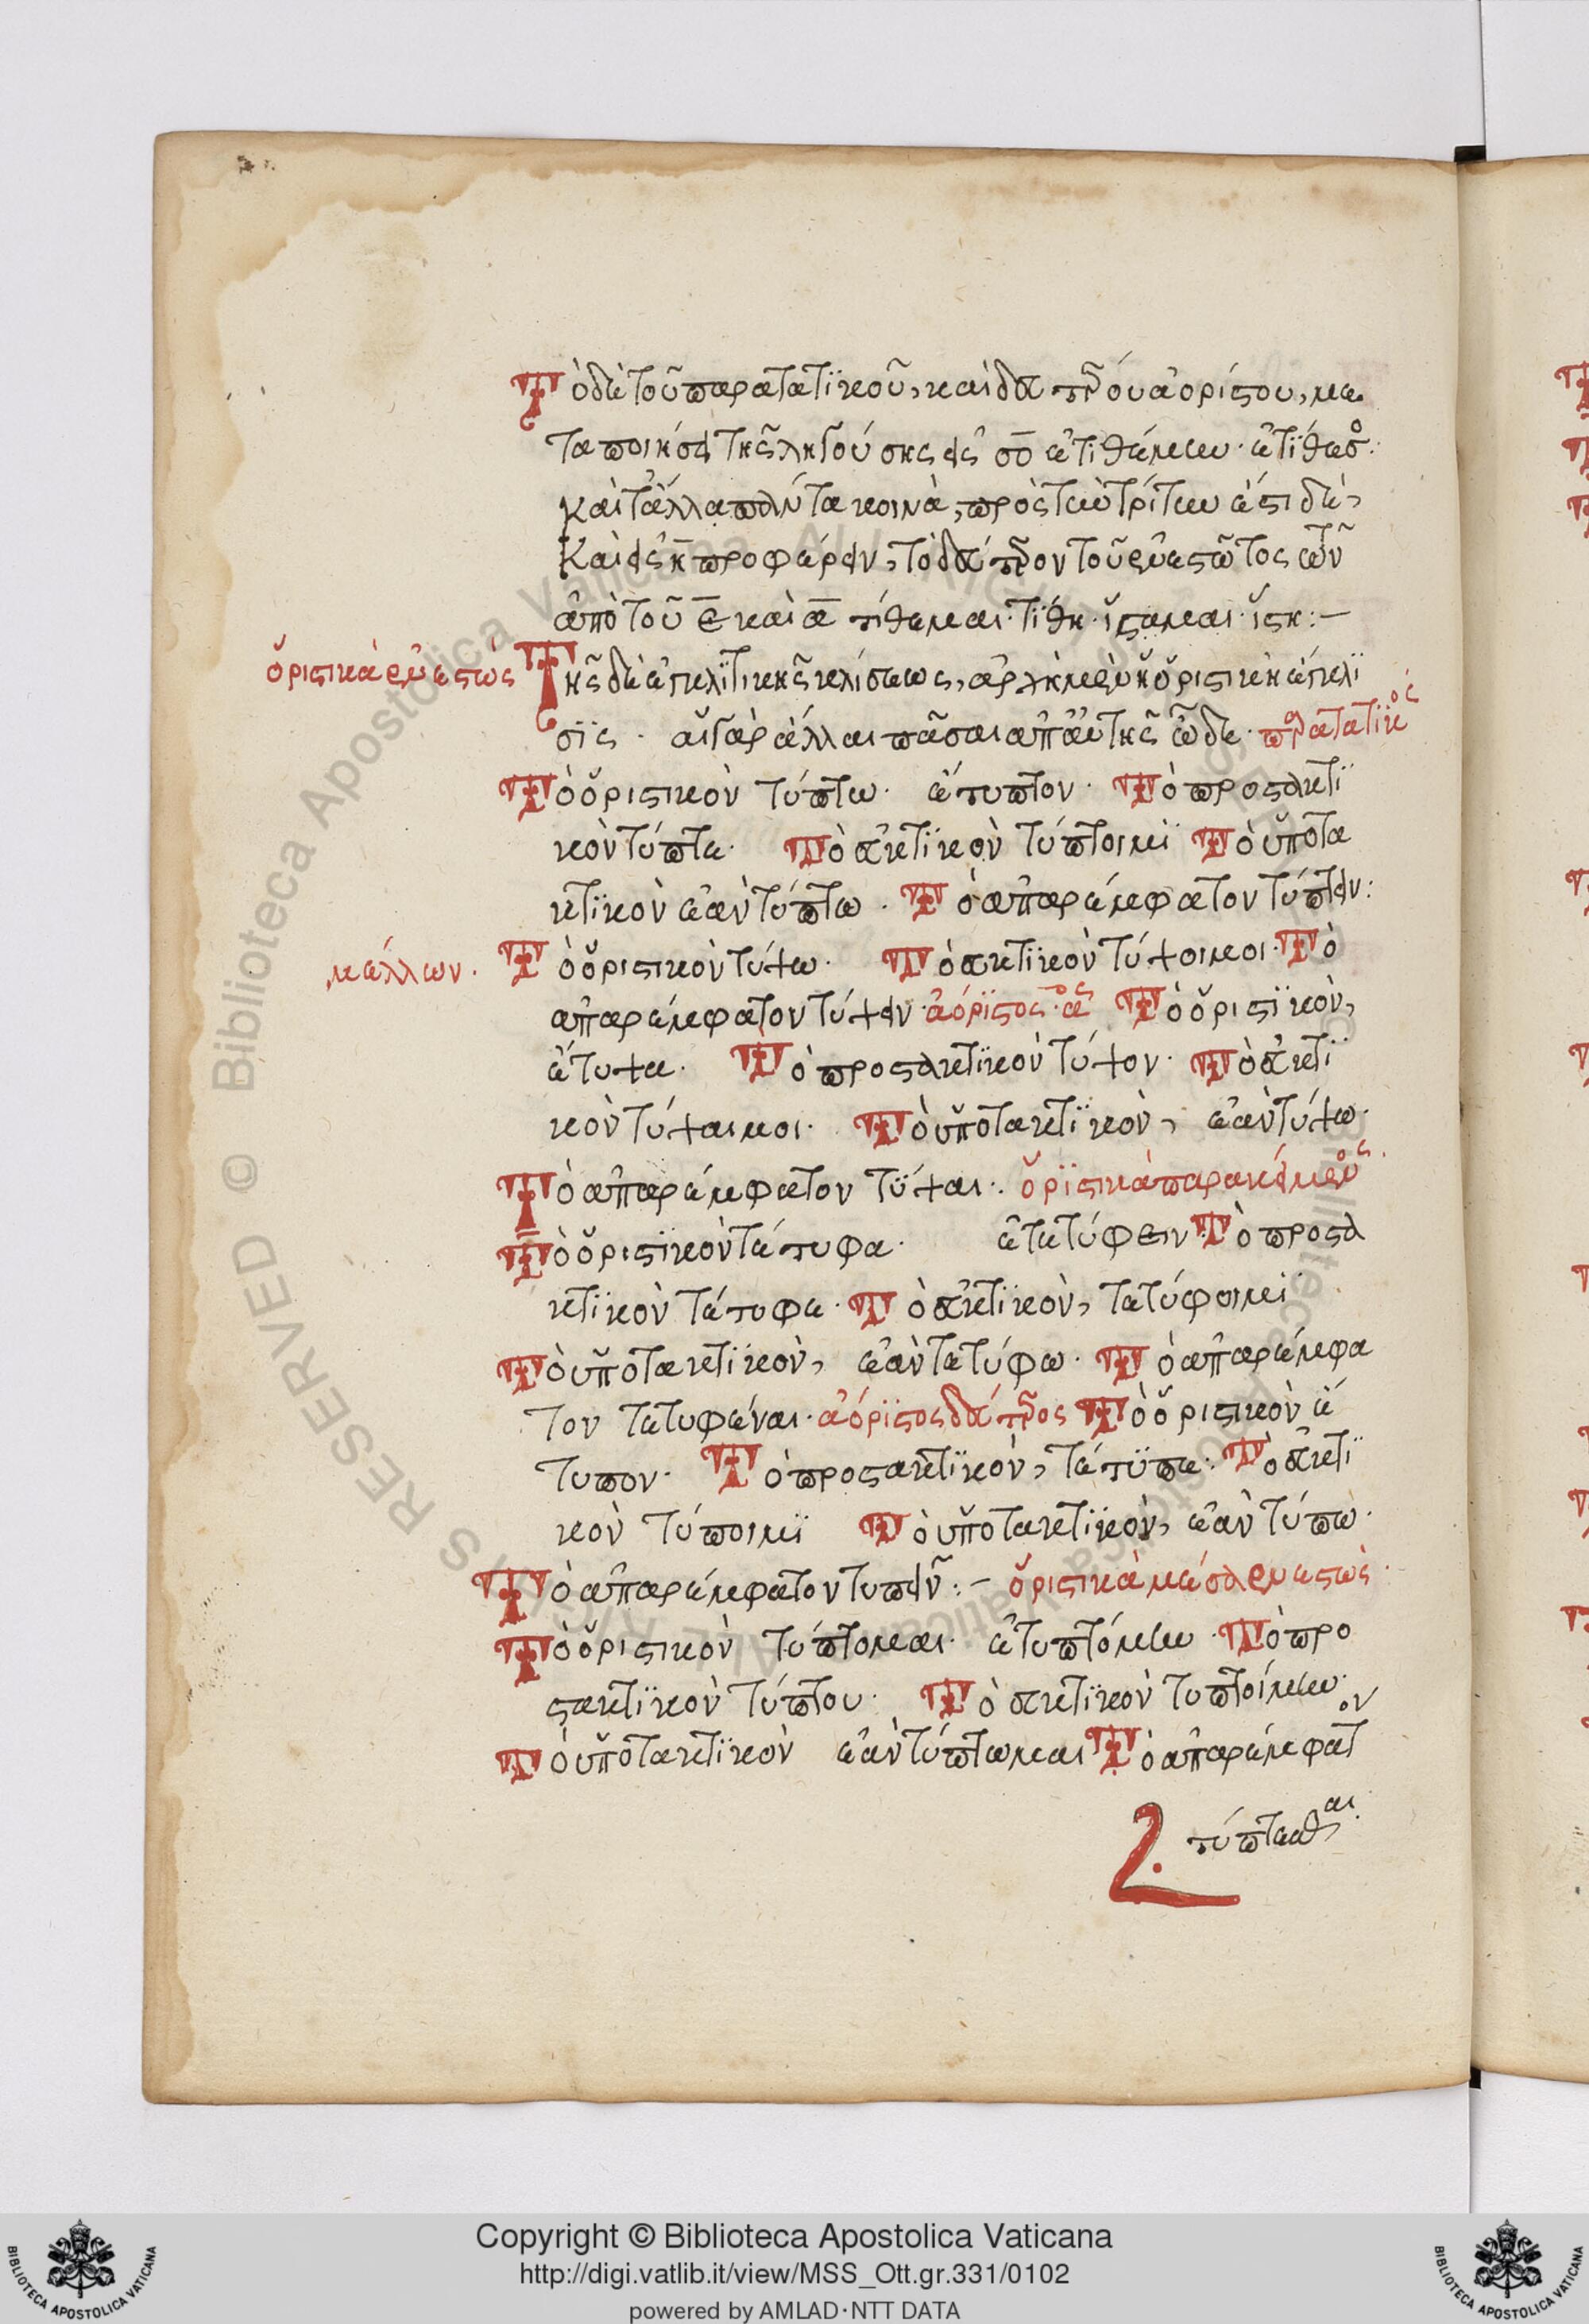 Τὸ δὲ τοῦ παρατατϊκοῦ, καὶ δευτέρου ἀορίστου, με
ταποιήσει τῆς ληγούσης εἰς σο ἐτιθέμην· ἐτίθεσο:
καὶ τἄλλα πλὴν τὰ κοινὰ, πρὸς τὴν τρίτην ἔστι δὲ,
καὶ εἰς η προφέρειν, τὸ δεύτερον τοῦ ἐνεστῶτος τῶν
ἀπὸ τοῦ ε καὶ α τίθεμαι· τίθη· ἵσταμαι· ἵστη:—
ὁριστικὰ ἐνεστὼς
Τῆς δὲ ἐγκλϊτικῆς κλίσεως, ἀρχὴ μὲν ἡ ὁριστικὴ ἔγκλϊ
σϊς· αἱ γὰρ ἄλλαι πᾶσαι ἀπ' αὐτῆς ὧδε· παρατατϊκὸς
Τὸ ὁριστικὸν τύπτω· ἔτυπτον· Τὸ προστακτϊ
κὸν τύπτε· Τὸ εὐκτϊκὸν τύπτοιμϊ Τὸ ὑποτα
κτϊκὸν ἐὰν τύπτω· Τὸ ἀπαρέμφατον τύπτειν:
μέλλων·
Τὸ ὁριστικὸν τύψω· Τὸ εὐκτϊκὸν τύψοιμοι· Τὸ
ἀπαρέμφατον τύψειν· ἀόρϊστος· αος Τὸ ὁριστϊκὸν,
ἔτυψα· Τὸ προστακτϊκὸν τύψον· Τὸ εὐκτϊ
κὸν τύψαιμοι· Τὸ ὑποτακτϊκὸν, ἐὰν τύψω·
Τὸ ἀπαρέμφατον τύψαι·. ὁρϊστικὰ παρακείμενος·
Τὸ ὁριστϊκὸν τέτυφα· ἐτετύφειν Τὸ προστα
κτϊκὸν τέτυφε· Τὸ εὐκτϊκὸν, τετύφοιμϊ
Τὸ ὑποτακτϊκὸν, ἐὰν τετύφω· Τὸ ἀπαρέμφα
τον τετυφέναι· ἀόρϊστος δεύτερος Τὸ ὁριστικὸν ἔ
τυπον· Τὸ προστακτϊκὸν, τέτϋπε· Τὸ εὐκτϊ
κὸν τύποιμϊ Τὸ ὑποτακτϊκὸν, ἐὰν τύπω·
Τὸ ἀπαρέμφατον τυπεῖν:— ὁριστικὰ μέσα ἐνεστὼς·
Τὸ ὁριστικὸν τύπτομαι· ἐτυπτόμην· Τὸ προ
στακτϊκὸν τύπτου· Τὸ εὐκτϊκὸν τυπτοίμην·
Τὸ ὑποτακτϊκὸν ἐὰν τύπτωμαι Τὸ ἀπαρέμφατον
τύπτεσθαι·
Copyright © Biblioteca Apostolica Vaticana
http://digi.vatlib.it/view/MSS_Ott.gr.331/0102
powered by AMLAD·NTT DATA